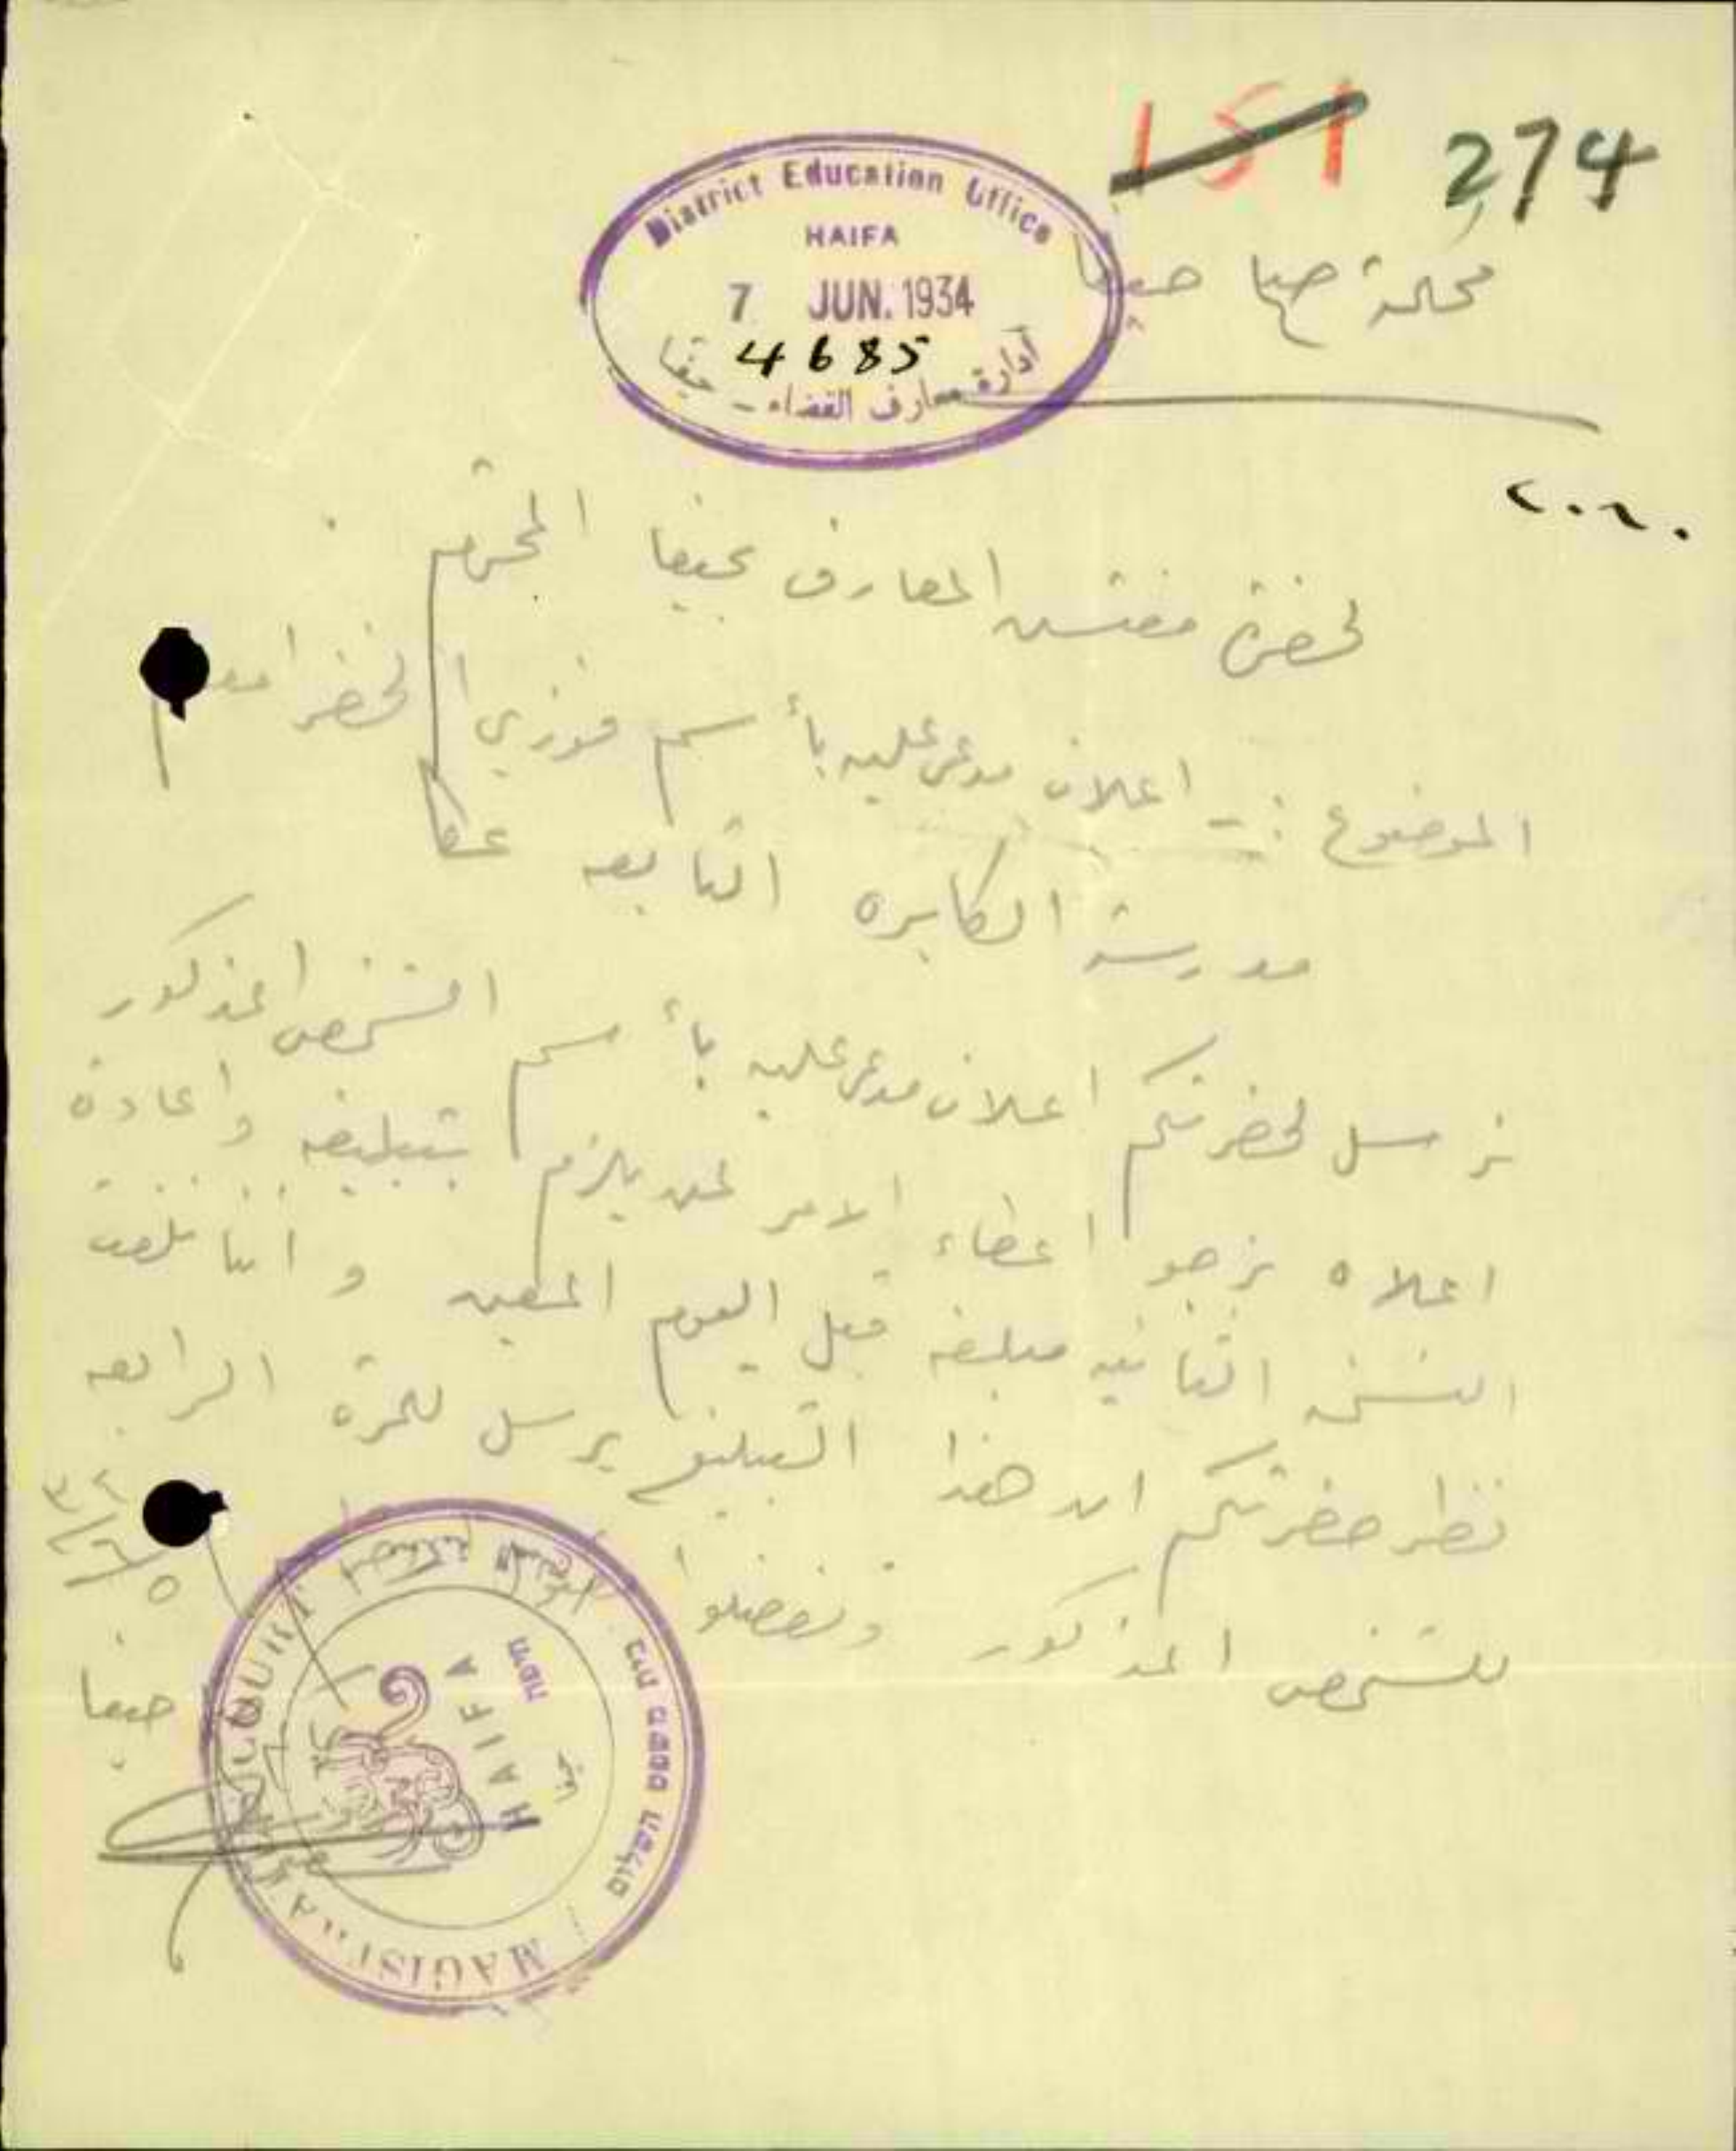 151 274
District Education Office
HAIFA
7 JUN. 1934
4685
ادارة معارف القضاء - حيفا
محكمة صلح حيفا
لحضرة مفتش المعارف بحيفا المحترم
الموضوع :- اعلان مدعى عليه بأسم فوزي الخضرا معلم
مدرسة الكابره التابعه عكا
نرسل لحضرتكم اعلان مدعى عليه بأسم الشخص المذكور
اعلاه نرجو اعطاء الامر لمن يلزم بتبليغه واعادة
النسخه الثانيه مبلغه قبل اليوم المعين و اننا نلفت
نظر حضرتكم ان هذا التبليغ يرسل للمرة الرابعه
للشخص المذكور وتفضلوا
٥/٦/٣٤
حيفا
MAGISTRATE COURT
בית משפט השלום
חיפה
HAIFA
حيفا